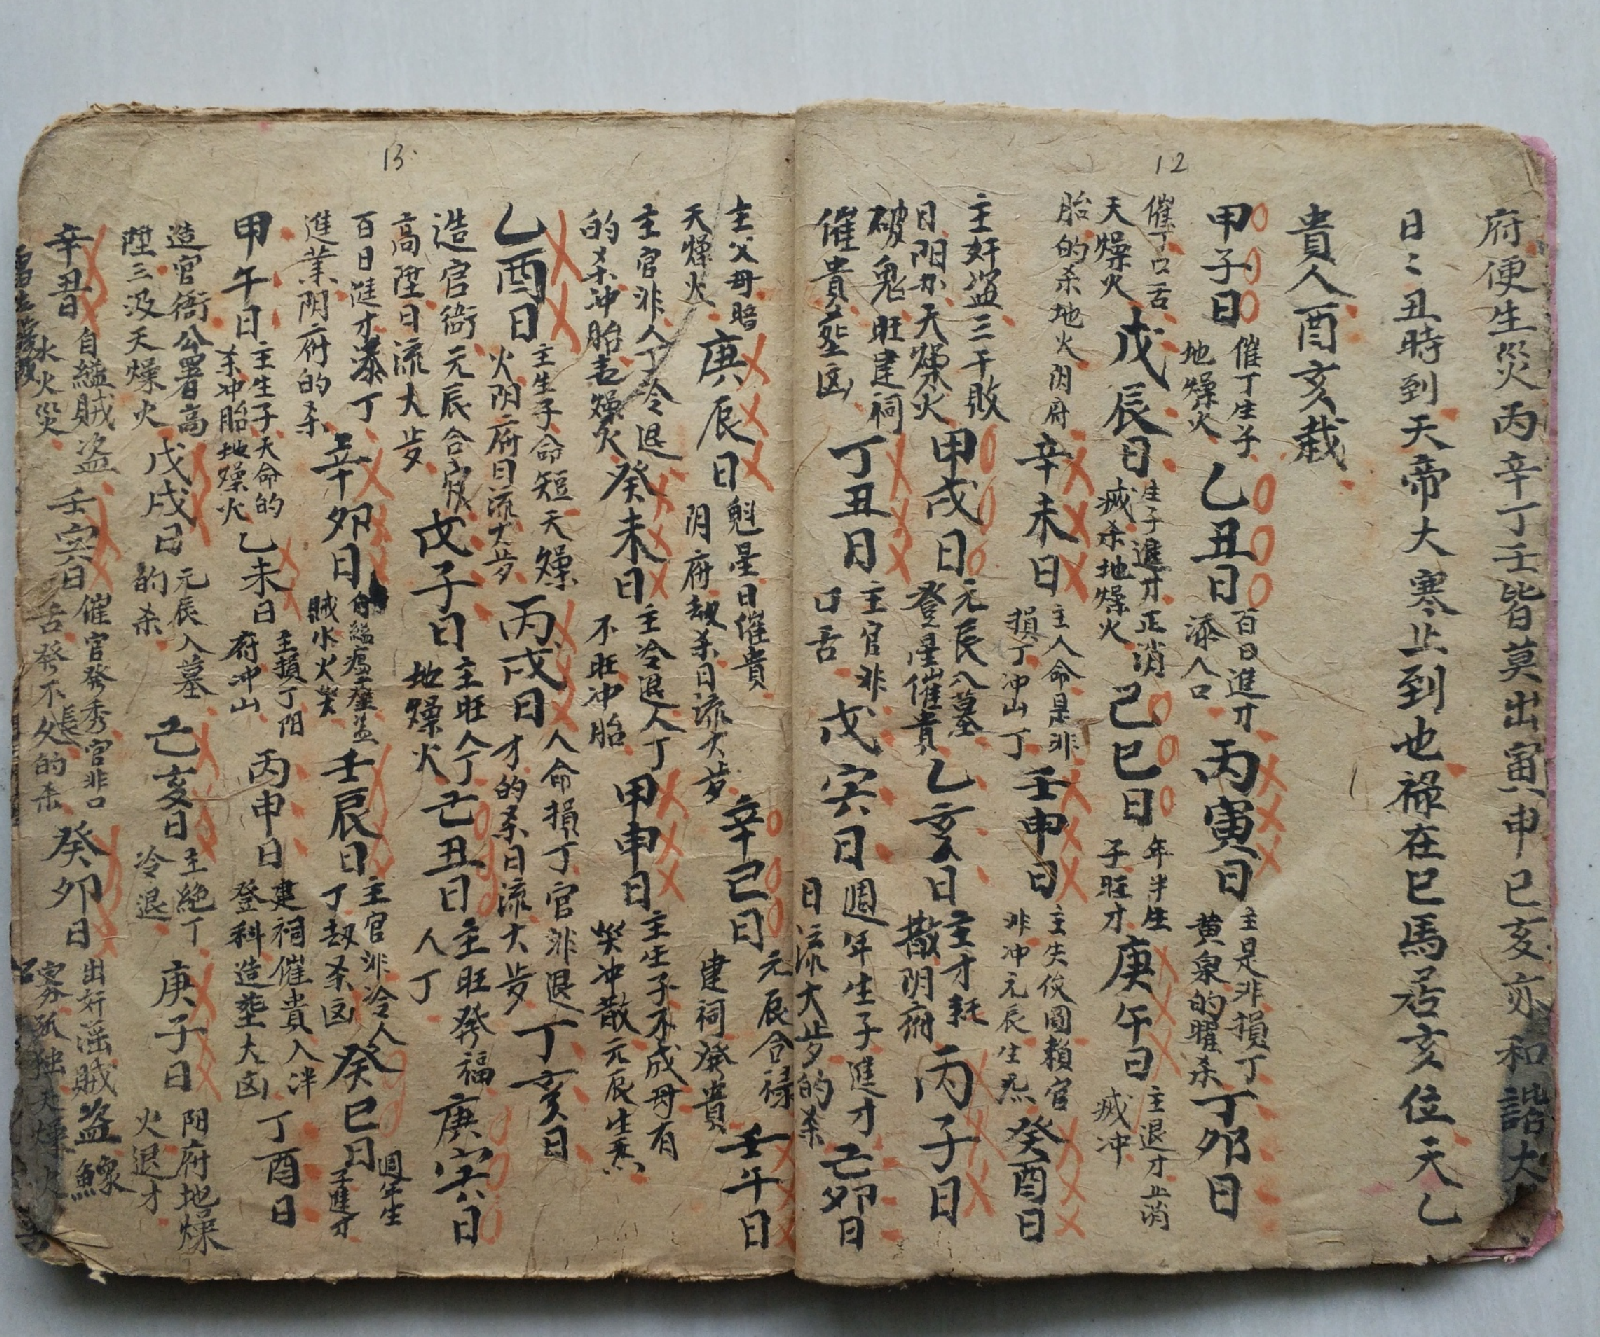 12
府便生災丙辛丁壬皆莫出寅申巳亥亦和諧大
日〻丑時到天帝大寒止到也祿在巳馬居亥位天乙
貴人酉亥栽
甲子日 催丁生子 地燥火 乙丑日 百日進才 添人口 丙寅日 主是非損丁 黄泉的曜杀 丁夘日
催丁口舌 天燥火 戊辰日 生子退才正消 滅杀地燥火 己巳日 年半生 子旺才 庚午日 主退才正消 滅冲
胎的杀地火阴府 辛未日 主人命是非 損丁冲山丁 壬申日 主失俊圖賴官 非冲元辰生炁 癸酉日
主奸盗三干敗 日阴府天燥火 甲戌日 元辰入墓 登星催貴 乙亥日 主才耗 散阴府 丙子日
破鬼旺建祠 催貴葬凶 丁丑日 主官非 口舌 戊寅日 週年生子進才 日流大步的杀 己夘日
13
主父母暗 天燥火 庚辰日 魁星日催貴 阴府刼杀日流大步 辛巳日 元辰合禄 建祠發貴 壬午日
主官非人丁冷退 的杀冲胎 燥火 癸未日 主冷退人丁 不旺冲胎 甲申日 主生子不成母有 災冲散元辰生炁
乙酉日 主生子命短天燥 火阴府日流大步 丙戌日 人命損丁官非退 才的杀日流大步 丁亥日
造官衙元辰合 高陞日流大步 戊子日 主旺人丁 地燥火 己丑日 主旺發福 人丁 庚寅日
百日進才添丁 進業阴府的杀 辛夘日 自縊瘟 盗 賊水火 壬辰日 主官非冷人 丁刼杀凶 癸巳日 週年生 子進才
甲午日 主生子夭命的 杀冲胎地燥火 乙未日 主損丁阴 府冲山 丙申日 建祠催貴入泮 登科造葬大凶 丁酉日
造官衙公署高 陞三汲天燥火 戊戌日 元辰入墓 的杀 己亥日 主絶丁 冷退 庚子日 阳府地燥 火退才
辛丑 自縊賊盗 水火災 壬寅日 催官發秀官非口 舌發不長久的杀 癸夘日 出奸淫賊盗鰥 寡孤独天燥火